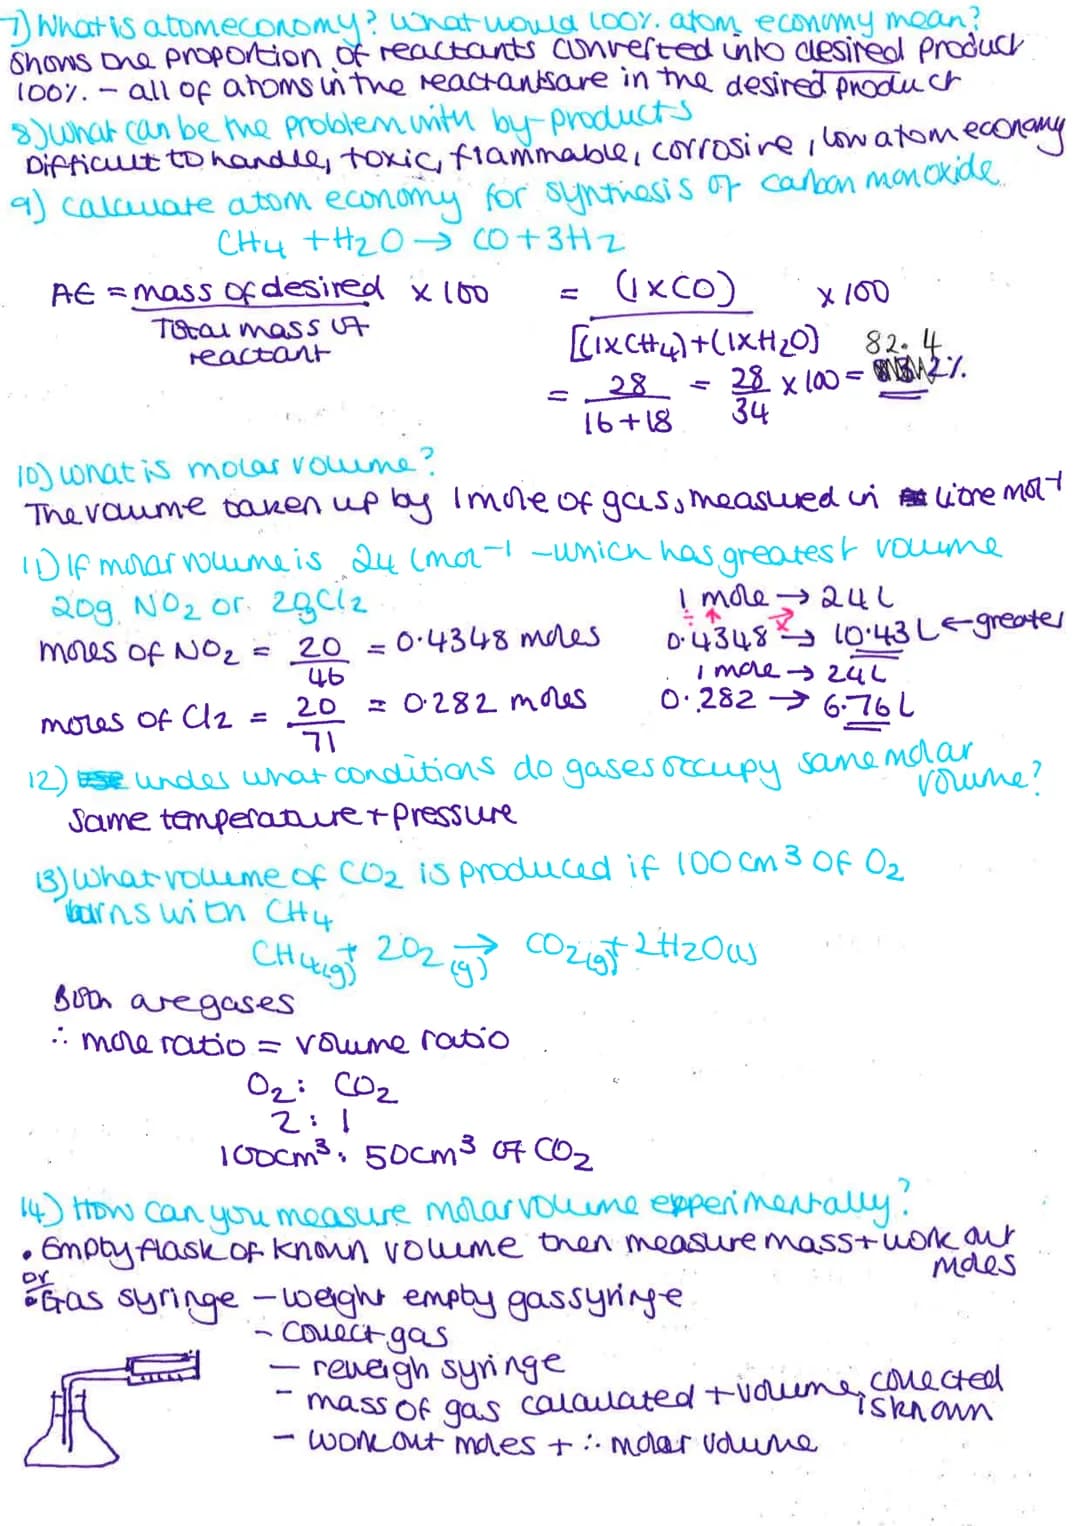 7) What is atomeconomy? What would 100%. atom economy mean?
Shows the proportion of reactants converted into desired product
100%. - all of atoms in the reactants are in the desired product
8) What can be the problem with by-products
Difficult to handle, toxic, flammable, corrosive, low atom economy
9) calculate atom economy for synthesis of carbon monoxide
CH4 + H2O → CO + 3H2
AE = mass of desired / Total mass of reactant × 100 = (1×CO) / [(1×CH4)+(1×H2O)] × 100
= 28 / 16+18 = 28 / 34 × 100 = 82.4 %
10) What is molar volume?
The volume taken up by 1 mole of gas, measured in litre mol-1
11) If molar volume is 24 l mol-1 - which has greatest volume
20g NO2 or 20g Cl2
1 mole → 24L
moles of NO2 = 20 / 46 = 0.4348 moles
0.4348 → 10.43L ← greater
÷ ×
1 mole → 24L
moles of Cl2 = 20 / 71 = 0.282 moles
0.282 → 6.76L
12) under what conditions do gases occupy same molar volume?
Same temperature + pressure
13) What volume of CO2 is produced if 100cm3 of O2
burns with CH4
CH4(g) + 2O2(g) → CO2(g) + 2H2O(l)
Both are gases
∴ mole ratio = volume ratio
O2 : CO2
2 : 1
100cm3 : 50cm3 of CO2
14) How can you measure molar volume experimentally?
• Empty flask of known volume then measure mass + work out
moles
or
• Gas syringe - weight empty gas syringe
- collect gas
- reweigh syringe
- mass of gas calculated + volume collected
is known
- work out moles + ∴ molar volume